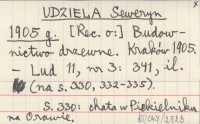 UDZIELA Seweryn
1905 g. [Rec. o:] Budow-
nictwo drzewne. Kraków 1905.
- Lud 11, nr 3: 341, il.
(na s. 330, 332-335).
S. 330: chata w Piekielniku
na Orawie.